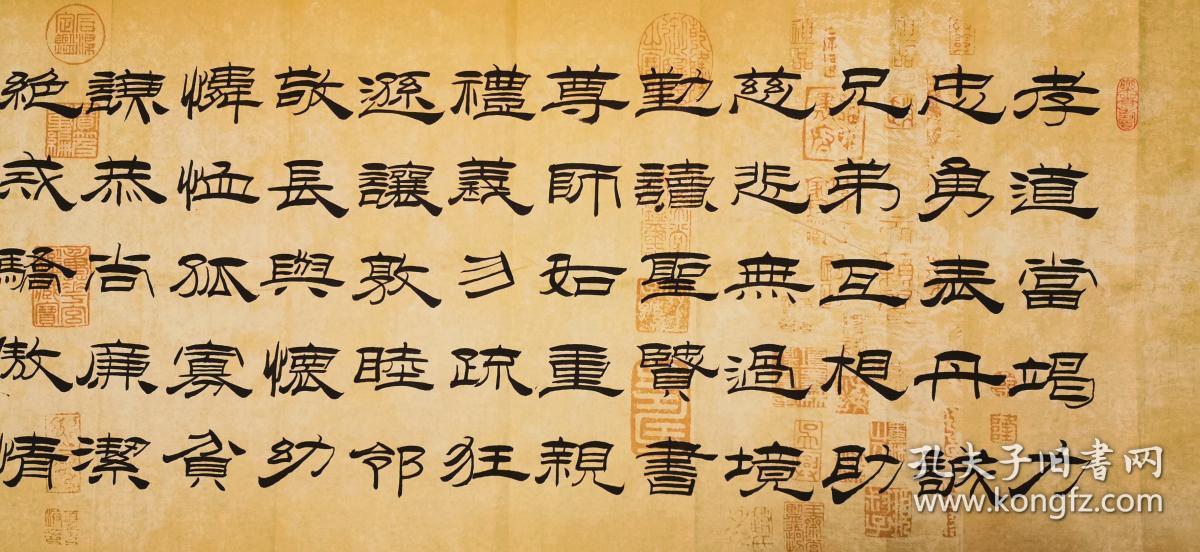 孝道當竭力
忠勇表丹誠
兄弟互相助
慈悲無過境
勤讀聖賢書
尊師如重親
禮義勿疏狂
遜讓敦睦邻
敬長與懷幼
憐恤孤寡貧
謙恭尚廉潔
絶戒驕傲情
孔夫子旧書网
www.kongfz.com